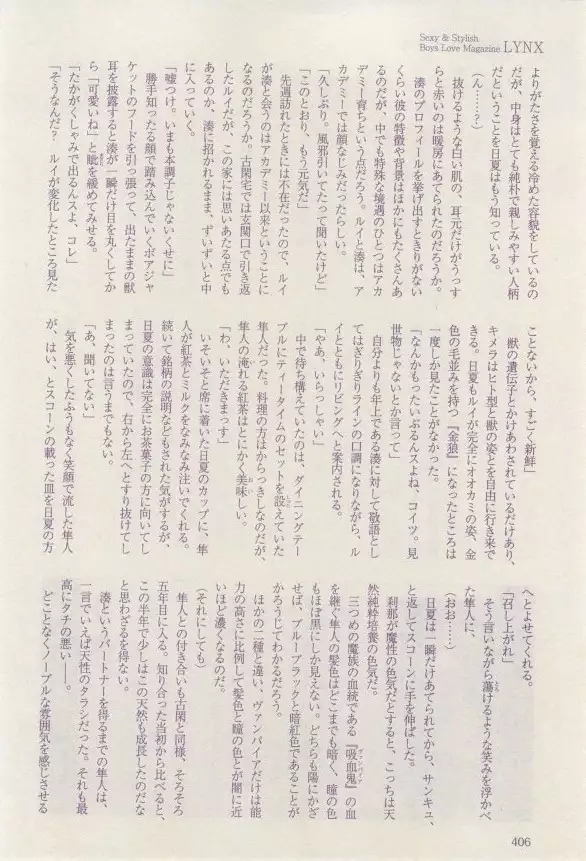 Sexy & Stylish
Boys Love Magazine LYNX
よりがたさを覚える冷めた容貌をしているの
だが、中身はとても純朴で親しみやすい人柄
だということを日夏はもう知っている。
(ん……?)
抜けるような白い肌の、耳元だけがうっす
らと赤いのは暖房にあてられたのだろうか。
湊のプロフィールを挙げ出すときりがない
くらい彼の特徴や背景はほかにもたくさんあ
るのだが、中でも特殊な境遇のひとつはアカ
デミー育ちという点だろう。ルイと湊は、ア
カデミーでは顔なじみだったらしい。
「久しぶり。風邪引いてたって聞いたけど」
「このとおり、もう元気だ」
先週訪れたときには不在だったので、ルイ
が湊と会うのはアカデミー以来ということに
なるのだろうか。古閑宅では玄関口で引き返
したルイだが、この家には思いあたる点でも
あるのか、湊に招かれるまま、ずいずいと中
に入っていく。
「嘘つけ。いまも本調子じゃないくせに」
勝手知ったる顔で踏み込んでいくボアジャ
ケットのフードを引っ張って、出たままの獣
耳を披露すると湊が一瞬だけ目を丸くしてか
ら「可愛いね」と眦を緩めてみせる。
「たかがくしゃみで出るんスよ、コレ」
「そうなんだ? ルイが変化したところ見た
ことないから、すごく新鮮」
獣の遺伝子とかけあわされているだけあり、
キメラはヒト型と獣の姿とを自由に行き来で
きる。日夏もルイが完全にオオカミの姿、金
色の毛並みを持つ『金狼』になったところは
一度しか見たことがなかった。
「なんかもったいぶるんスよね、コイツ。見
世物じゃないとか言って」
自分よりも年上である湊に対して敬語とし
てはぎりぎりラインの口調になりながら、ル
イとともにリビングへと案内される。
「やあ、いらっしゃい」
中で待ち構えていたのは、ダイニングテー
ブルにティータイムのセットを設えていた
隼人だった。料理の方はからっきしなのだが、
隼人の淹れる紅茶はとにかく美味しい。
「わ、いただきまっす」
いそいそと席に着いた日夏のカップに、隼
人が紅茶とミルクをなみなみ注いでくれる。
続いて銘柄の説明などもされた気がするが、
日夏の意識は完全にお茶菓子の方に向いてし
まっていたので、右から左へとすり抜けてし
まったのは言うまでもない。
「あ、聞いてない」
気を悪くしたふうもなく笑顔で流した隼人
が、はい、とスコーンの載った皿を日夏の方
へとよせてくれる。
「召し上がれ」
そう言いながら蕩けるような笑みを浮かべ
た隼人に、
(おお……)
日夏は一瞬だけあてられてから、サンキュ、
と返してスコーンに手を伸ばした。
刹那が魔性の色気だとすると、こっちは天
然純粋培養の色気だ。
三つめの魔族の血統である『吸血鬼』の血
を継ぐ隼人の髪色はどこまでも暗く、瞳の色
もほぼ黒にしか見えない。どちらも陽にかざ
せば、ブルーブラックと暗紅色であることが
かろうじてわかるだろう。
ほかの二種と違い、ヴァンパイアだけは能
力の高さに比例して髪色と瞳の色とが闇に近
いほど濃くなるのだ。
(それにしても)
隼人との付き合いも古閑と同様、そろそろ
五年目に入る。知り合った当初から比べると、
この半年で少しはこの天然も成長したのだな
と思わざるを得ない。
湊というパートナーを得るまでの隼人は、
一言でいえば天性のタラシだった。それも最
高にタチの悪い――。
どことなくノーブルな雰囲気を感じさせる
406